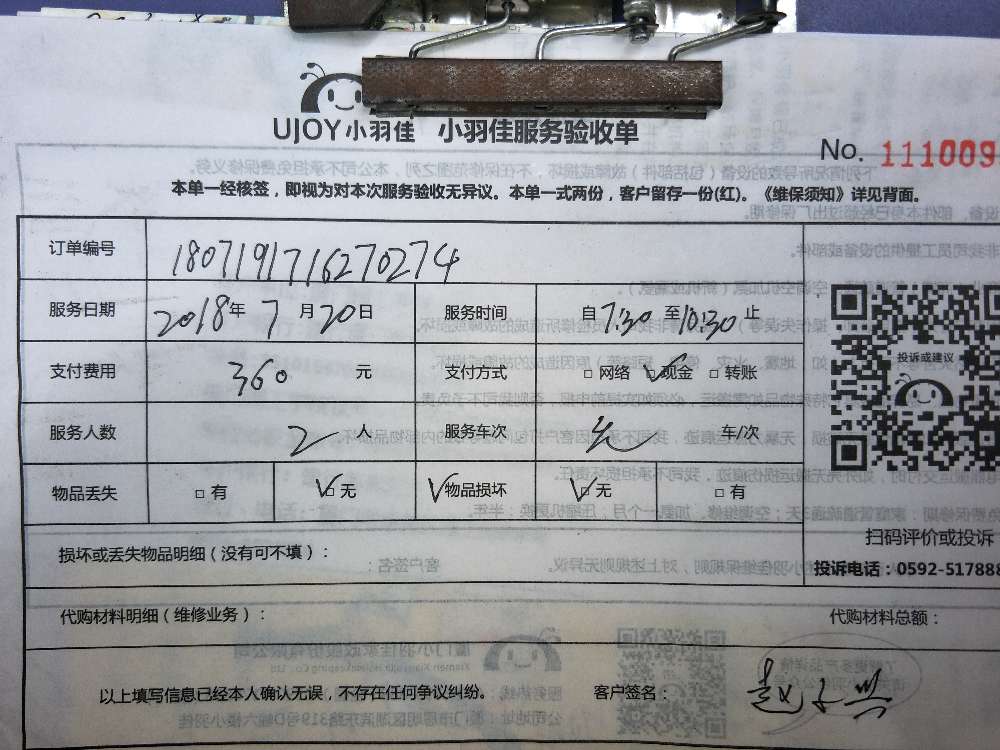 UJOY小羽佳 小羽佳服务验收单
No. 111009
本单一经核签，即视为对本次服务验收无异议。本单一式两份，客户留存一份(红)。《维保须知》详见背面。
订单编号 1807191716270274
服务日期 2018年7月20日 服务时间 自7:30至10:30止
支付费用 360 元 支付方式 □网络 ☑现金 □转账
投诉或建议
服务人数 2 人 服务车次 车/次
物品丢失 □有 ☑无 √物品损坏 ☑无 □有
扫码评价或投诉
损坏或丢失物品明细（没有可不填）：
投诉电话：0592-517888
代购材料明细（维修业务）： 代购材料总额：
以上填写信息已经本人确认无误，不存在任何争议纠纷。 客户签名：